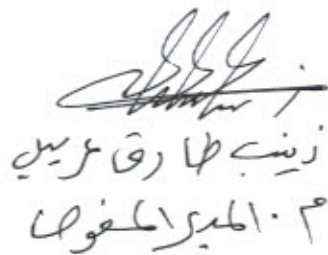 زينب طارق عريبي
م . المدير المفوض